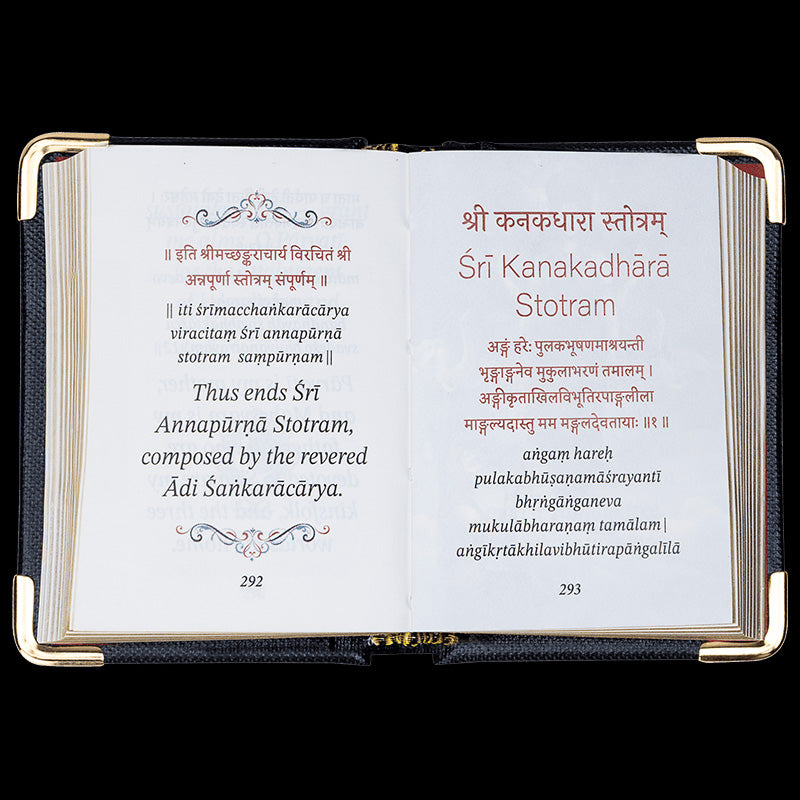 ॥ इति श्रीमच्छङ्कराचार्य विरचितं श्री
अन्नपूर्णा स्तोत्रम् संपूर्णम् ॥
|| iti śrīmacchaṅkarācārya
viracitaṃ Śrī annapūrṇā
stotram saṃpūrṇam ||
Thus ends Śrī
Annapūrṇā Stotram,
composed by the revered
Ādi Śaṅkarācārya.
292
श्री कनकधारा स्तोत्रम्
Śrī Kanakadhārā
Stotram
अङ्गं हरे: पुलकभूषणमाश्रयन्ती
भृङ्गाङ्गनेव मुकुलाभरणं तमालम् ।
अङ्गीकृताखिलविभूतिरपाङ्गलीला
माङ्गल्यदास्तु मम मङ्गलदेवतायाः ॥१ ॥
aṅgaṃ hareḥ
pulakabhūṣaṇamāśrayantī
bhṛṅgāṅganeva
mukulābharaṇaṃ tamālam |
aṅgīkṛtākhilavibhūtirapāṅgalīlā
293